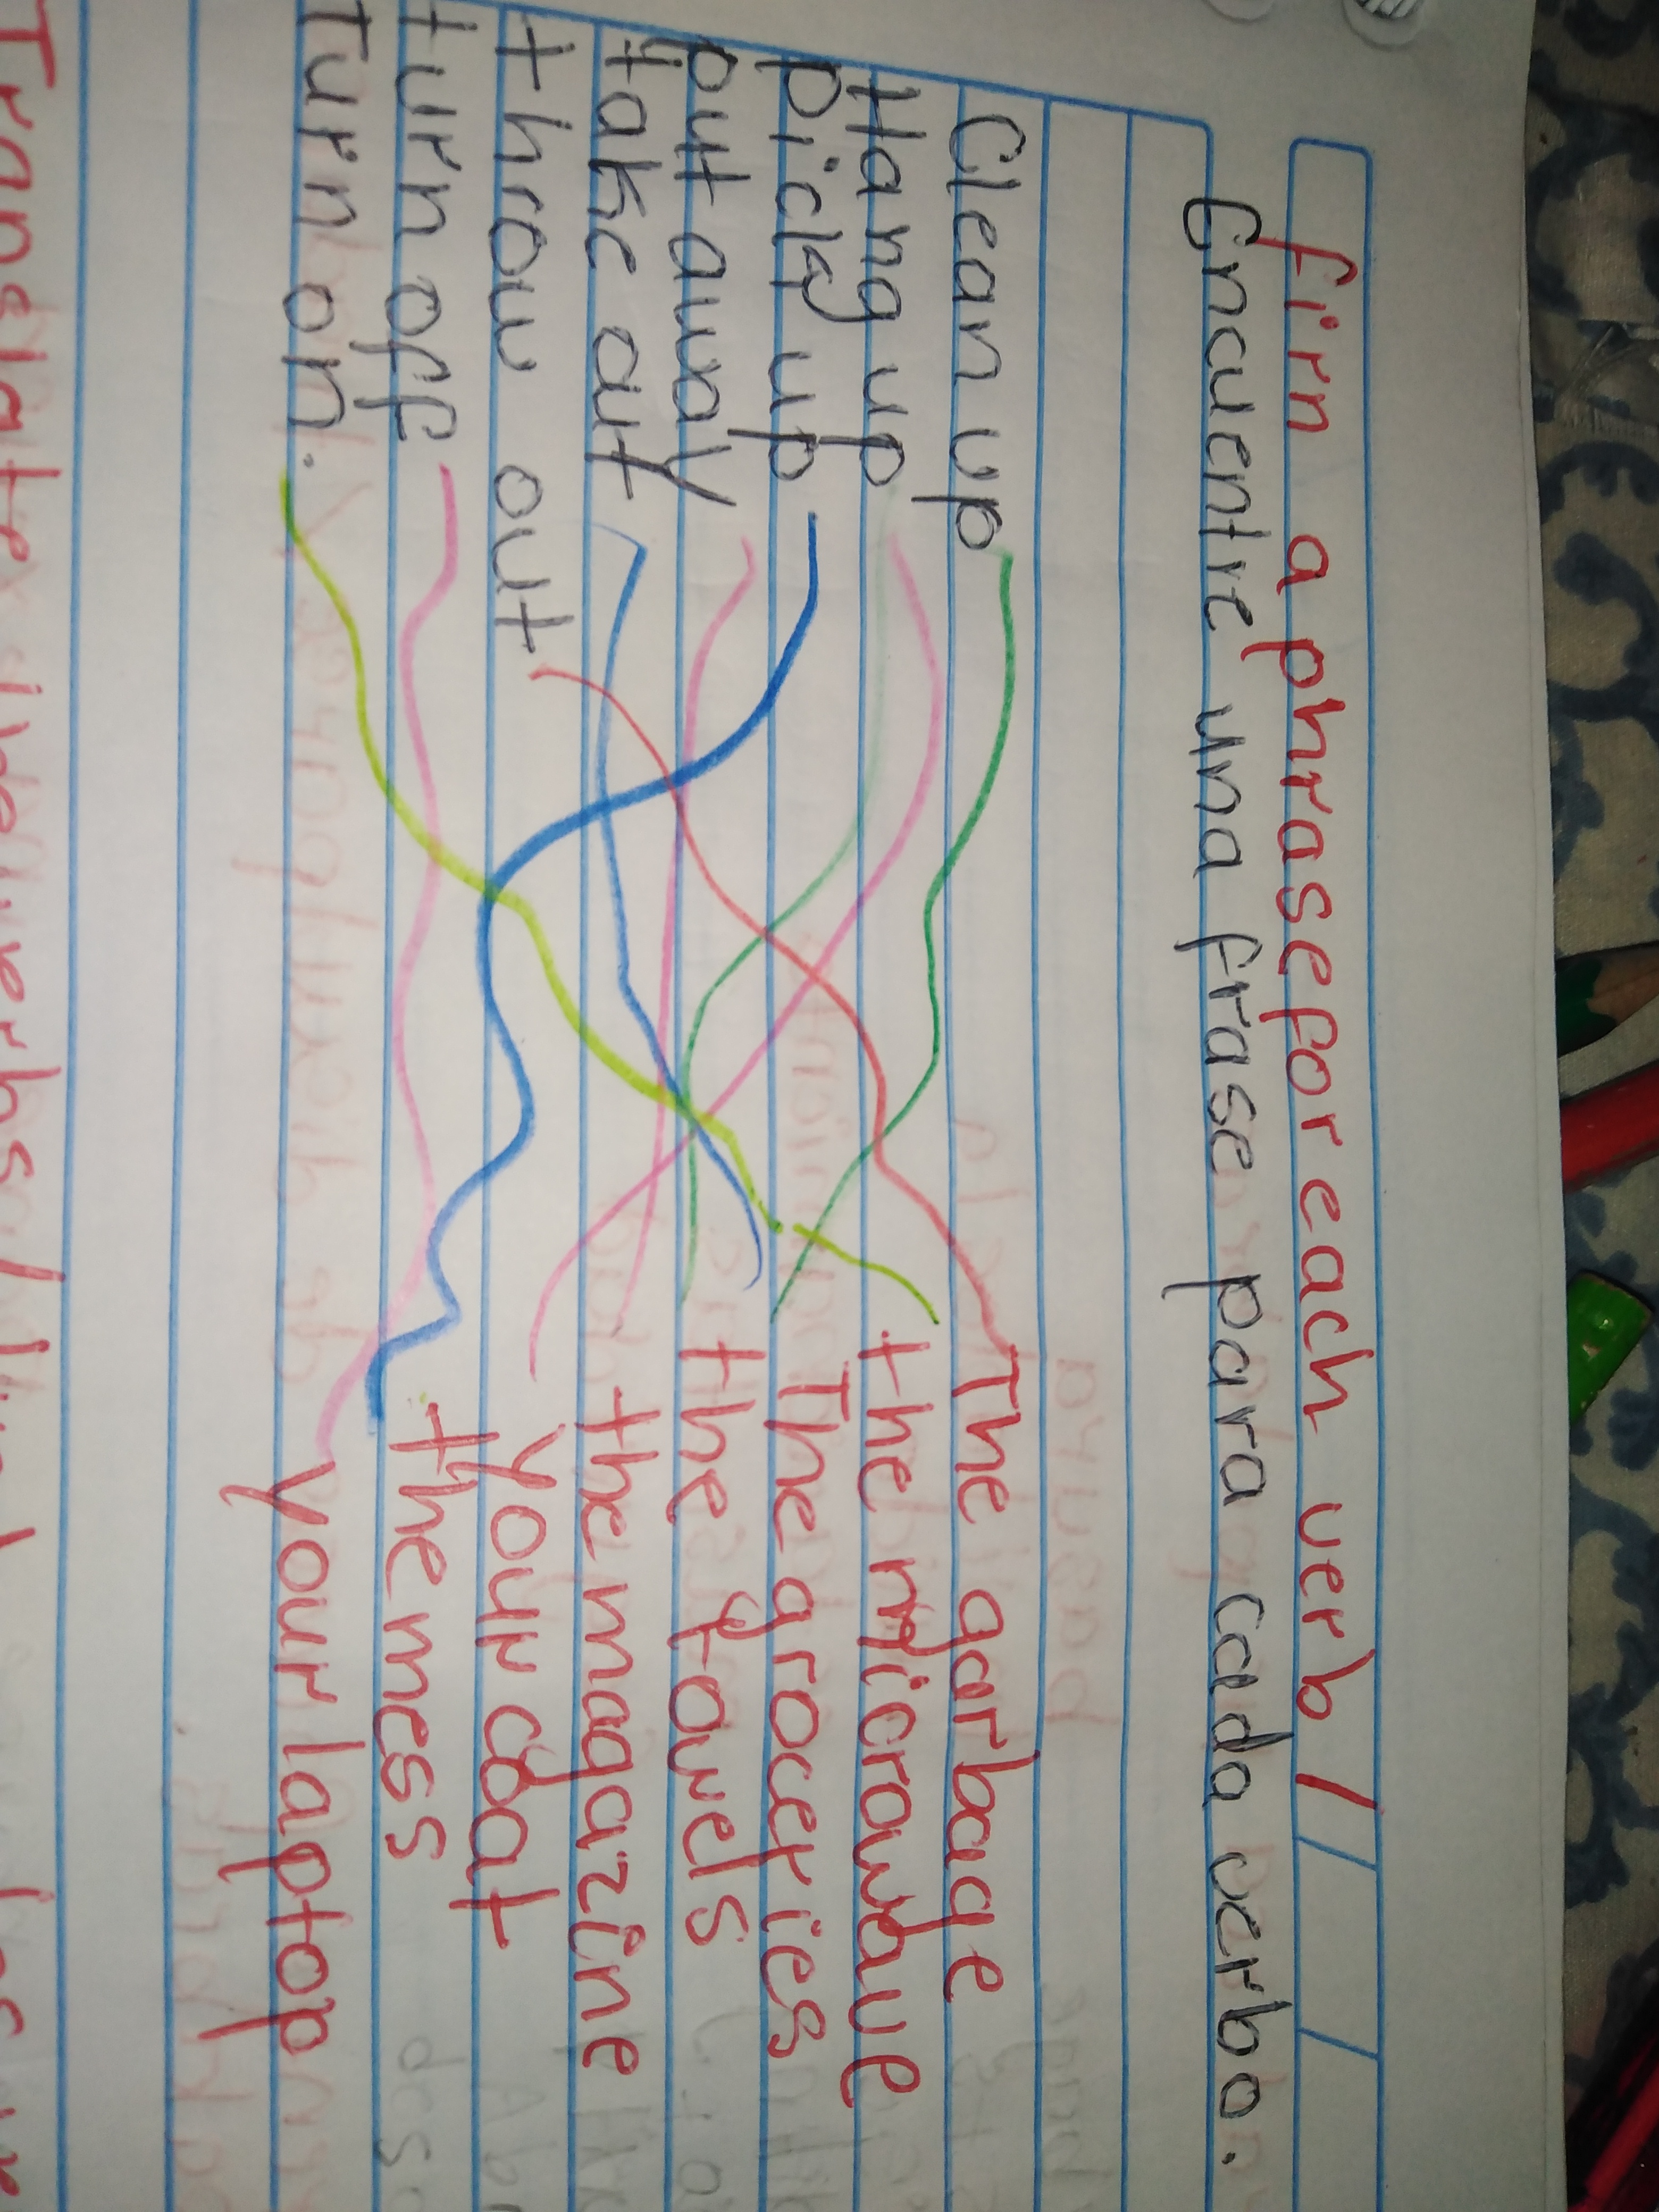 firn a phrase for each verb /
Encuentre una frase para cada verbo.
Clean up The garbage
Hang up the microwave
pick up The groceries
put away the towels
take out the magazine
throw out your coat
turn off the mess
Turn on. your laptop